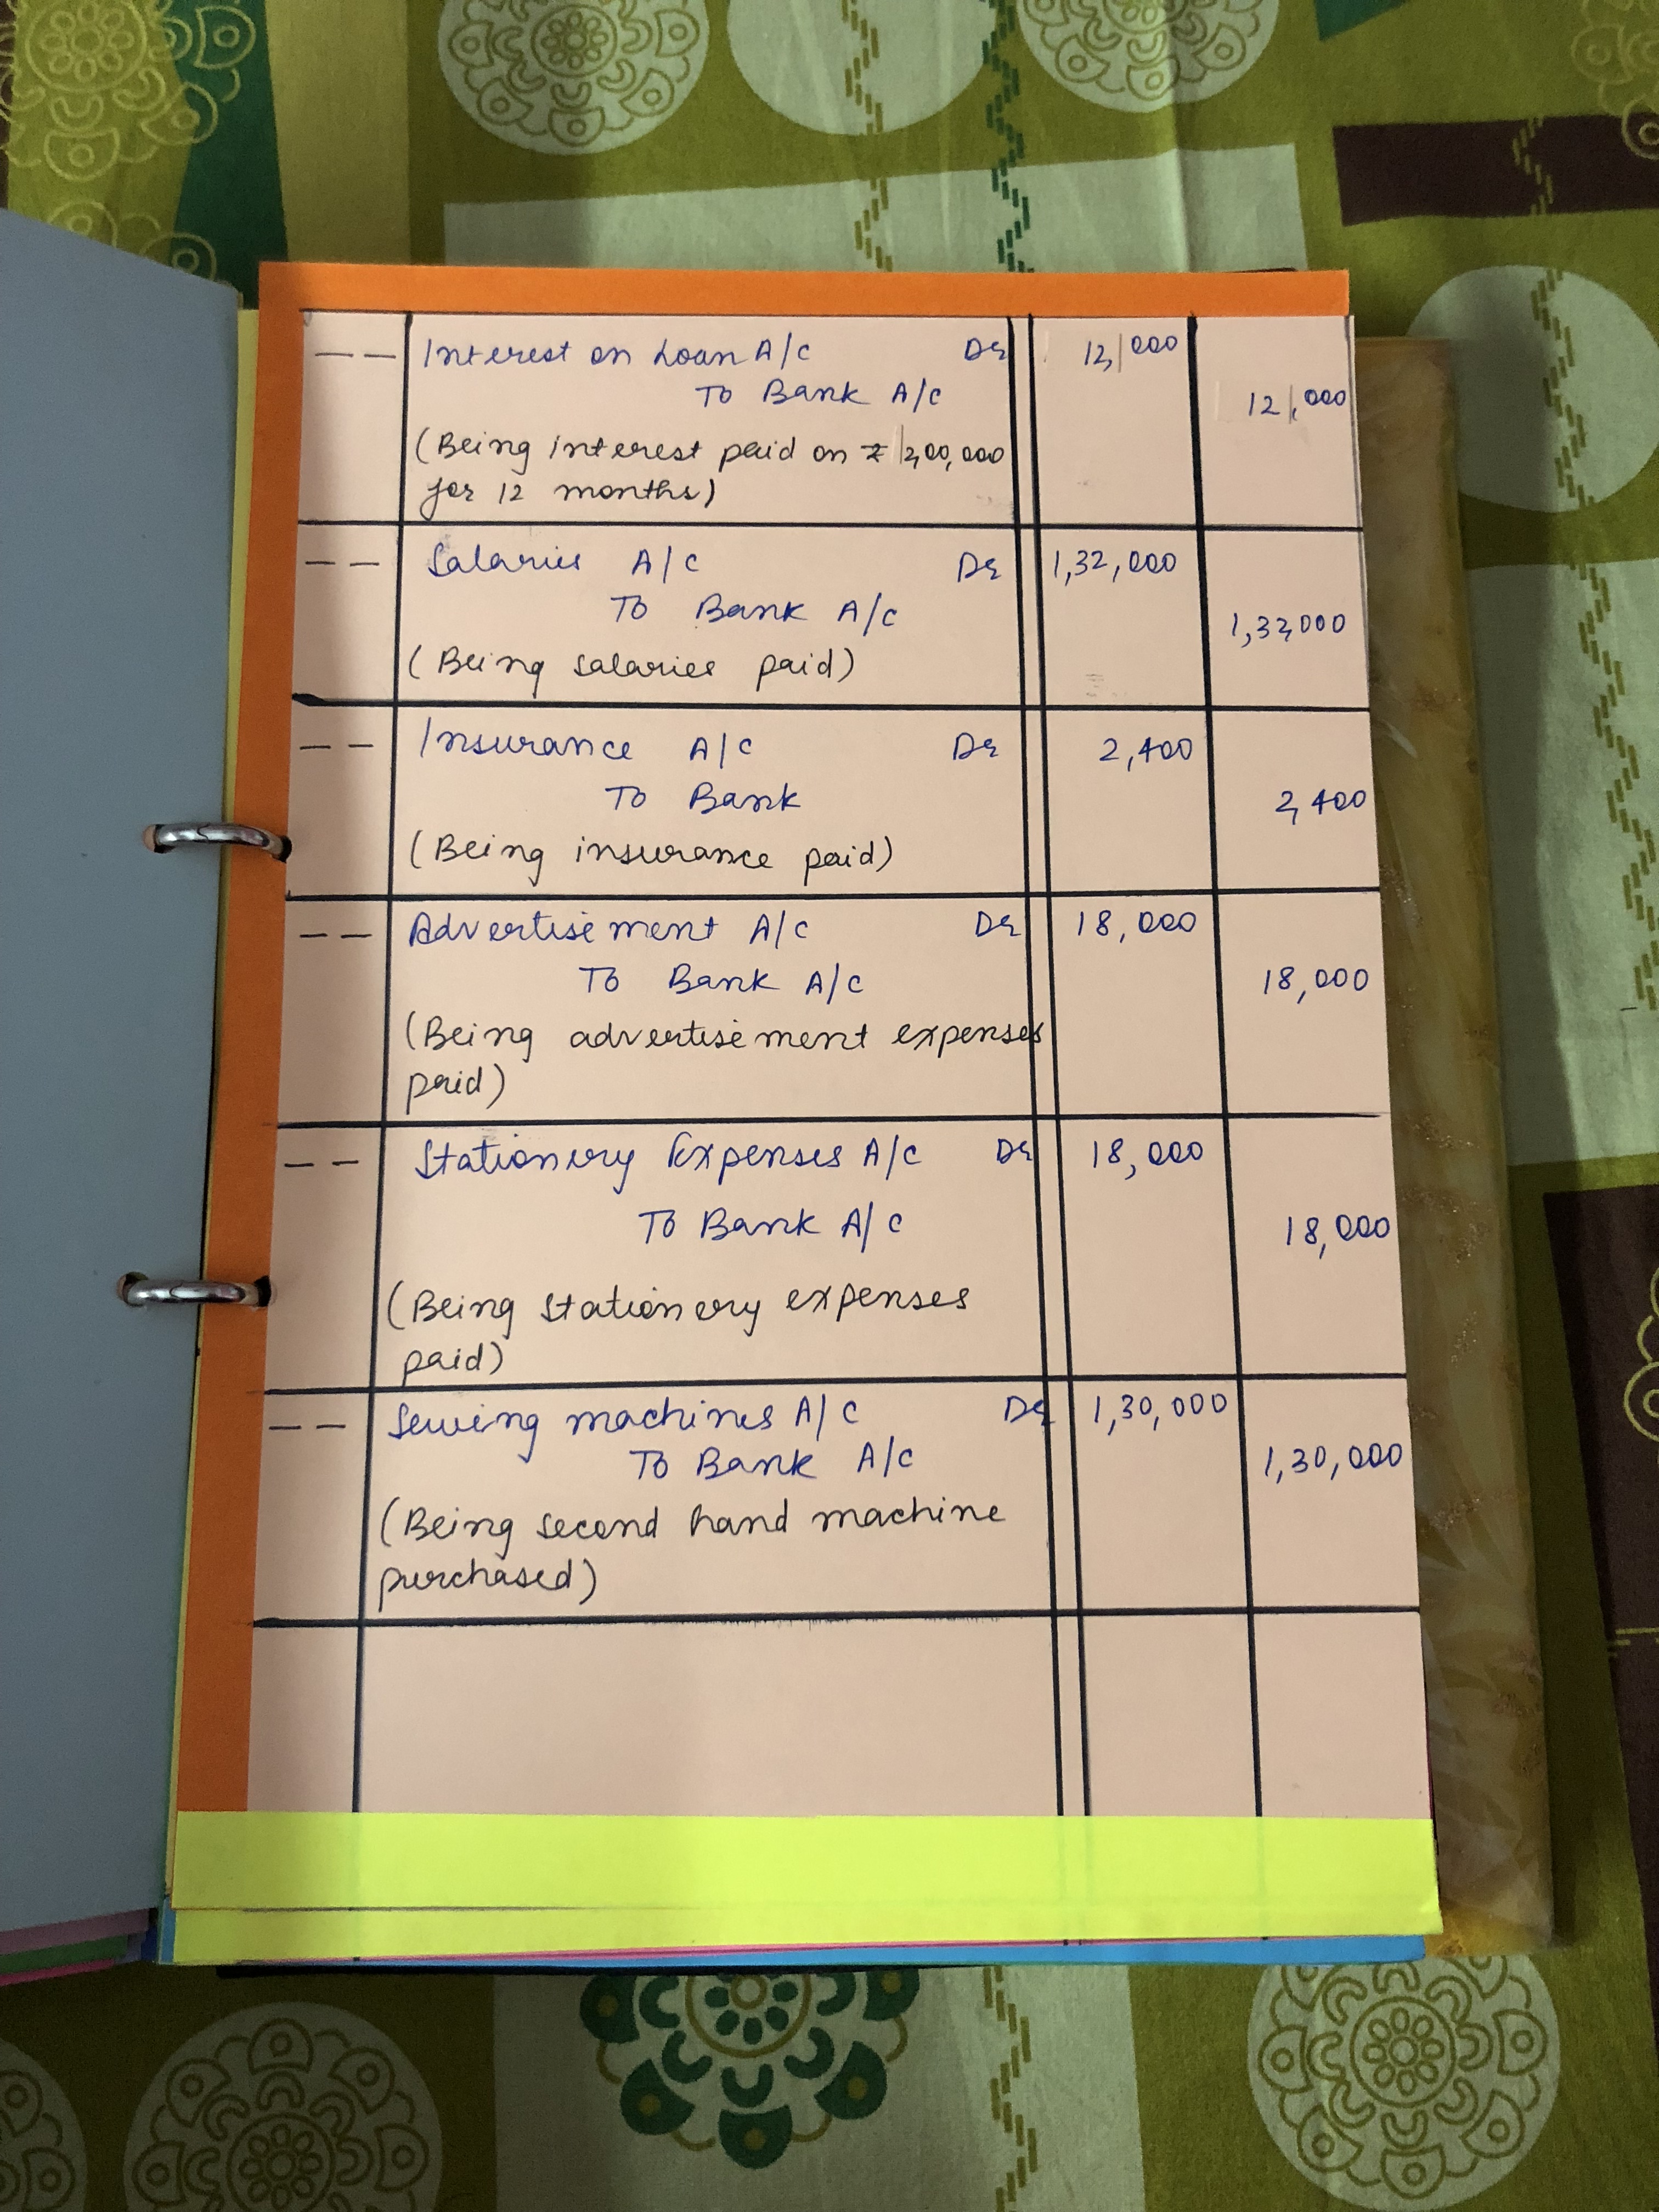 -- Interest on Loan A/C Dr 12,000
To Bank A/C 12,000
(Being interest paid on ₹ 2,00,000
for 12 months)
-- Salaries A/C Dr 1,32,000
To Bank A/C 1,32,000
(Being salaries paid)
-- Insurance A/C Dr 2,400
To Bank 2,400
(Being insurance paid)
-- Advertisement A/C Dr 18,000
To Bank A/C 18,000
(Being advertisement expenses
paid)
-- Stationery Expenses A/C Dr 18,000
To Bank A/C 18,000
(Being stationery expenses
paid)
-- Sewing machines A/C Dr 1,30,000
To Bank A/C 1,30,000
(Being second hand machine
purchased)